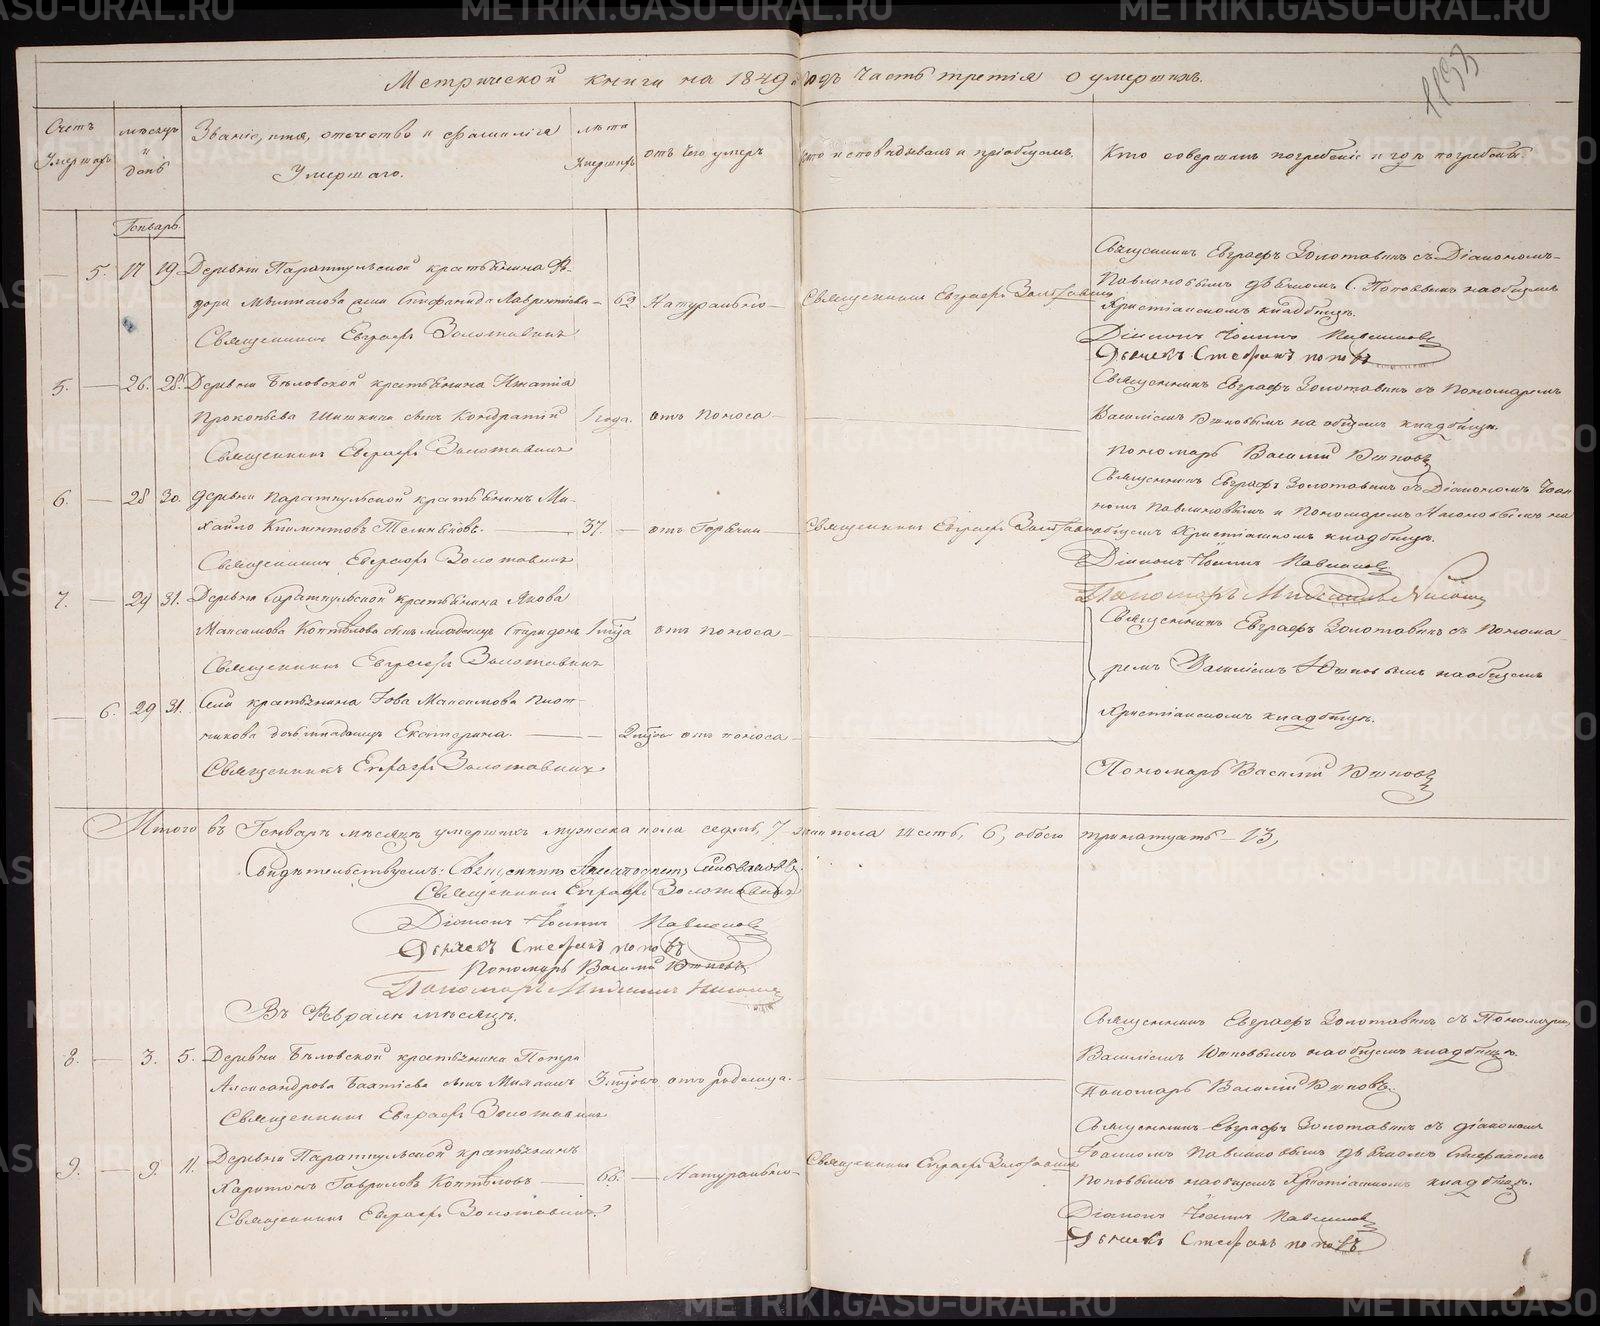 METRIKI.GASU-URAL.RU METRIKI.GASU-URAL.RU
Метрической книги на 1849 годъ Часть третія о умершихъ.
Счетъ Умершихъ
мѣсяцъ и день
Званіе, имя, отечество и фамилія Умершаго.
лѣта Умершихъ
отъ чего умеръ
кто исповѣдывалъ и пріобщалъ.
Кто совершалъ погребеніе и гдѣ погребены.
Генварь.
5. 17 19 Деревни Параткульской крестьянина Ѳе-
дора
жена Стефанида Лаврентіева 62 Натурально
Священникъ Евграфъ Золотавинъ
Священникъ Евграфъ Золотавинъ
Священникъ Евграфъ Золотавинъ съ Діакономъ
Павлиновымъ дьячкомъ С. Поповымъ на общемъ
Христіанскомъ кладбищѣ.
Діаконъ Іоаннъ Павлиновъ
Дьячекъ Стефанъ Поповъ
5. 26. 28. Деревни Бѣловской крестьянина Игнатія
Прокопьева Шишкина сынъ Кондратій 1 года. отъ поноса
Священникъ Евграфъ Золотавинъ
Священникъ Евграфъ Золотавинъ съ Пономаремъ
Василіемъ на общемъ кладбищѣ.
Пономарь Василій
6. 28 30. Деревни Параткульской крестьянинъ Ми-
хайло Климентовъ 37. отъ Горячки
Священникъ Евграфъ Золотавинъ
Священникъ Евграфъ Золотавинъ
Священникъ Евграфъ Золотавинъ съ Діакономъ Іоан
номъ Павлиновымъ и Пономаремъ на
общемъ Христіанскомъ кладбищѣ.
Діаконъ Іоаннъ Павлиновъ
Пономарь
7. 29 31. Деревни Параткульской крестьянина Якова
Максимова Коптѣлова сынъ младенецъ Спиридонъ отъ поноса
Священникъ Евграфъ Золотавинъ
Священникъ Евграфъ Золотавинъ съ Понома
ремъ Василіемъ на общемъ
Христіанскомъ кладбищѣ.
6. 29 31. Села крестьянина Іова Максимова Плот-
никова дочь младенецъ Екатерина. отъ поноса
Священникъ Евграфъ Золотавинъ
Пономарь Василій
Итого въ Генварѣ мѣсяцѣ умершихъ мужеска пола седмь, 7 жен. пола шесть, 6, обоего тринатцать 13,
Свидѣтельствуемъ: Священникъ
Священникъ Евграфъ Золотавинъ
Діаконъ Іоаннъ Павлиновъ
Дьячекъ Стефанъ Поповъ
Пономарь Василій
Пономарь
Въ Февралѣ мѣсяцѣ.
8. 3. 5. Деревни Бѣловской крестьянина Петра
Александрова сынъ Михаилъ отъ родимца.
Священникъ Евграфъ Золотавинъ
Священникъ Евграфъ Золотавинъ съ Пономаремъ
Василіемъ на общемъ кладбищѣ.
Пономарь Василій
9. 9. 11. Деревни Параткульской крестьянинъ
Харитонъ Гавриловъ Коптѣловъ 66. Натурально
Священникъ Евграфъ Золотавинъ
Священникъ Евграфъ Золотавинъ
Священникъ Евграфъ Золотавинъ съ діакономъ
Іоанномъ Павлиновымъ дьячкомъ Стефаномъ
Поповымъ на общемъ Христіанскомъ кладбищѣ.
Діаконъ Іоаннъ Павлиновъ
Дьячекъ Стефанъ Поповъ
METRIKI.GASU-URAL.RU METRIKI.GASU-URAL.RU METRIKI.GASO